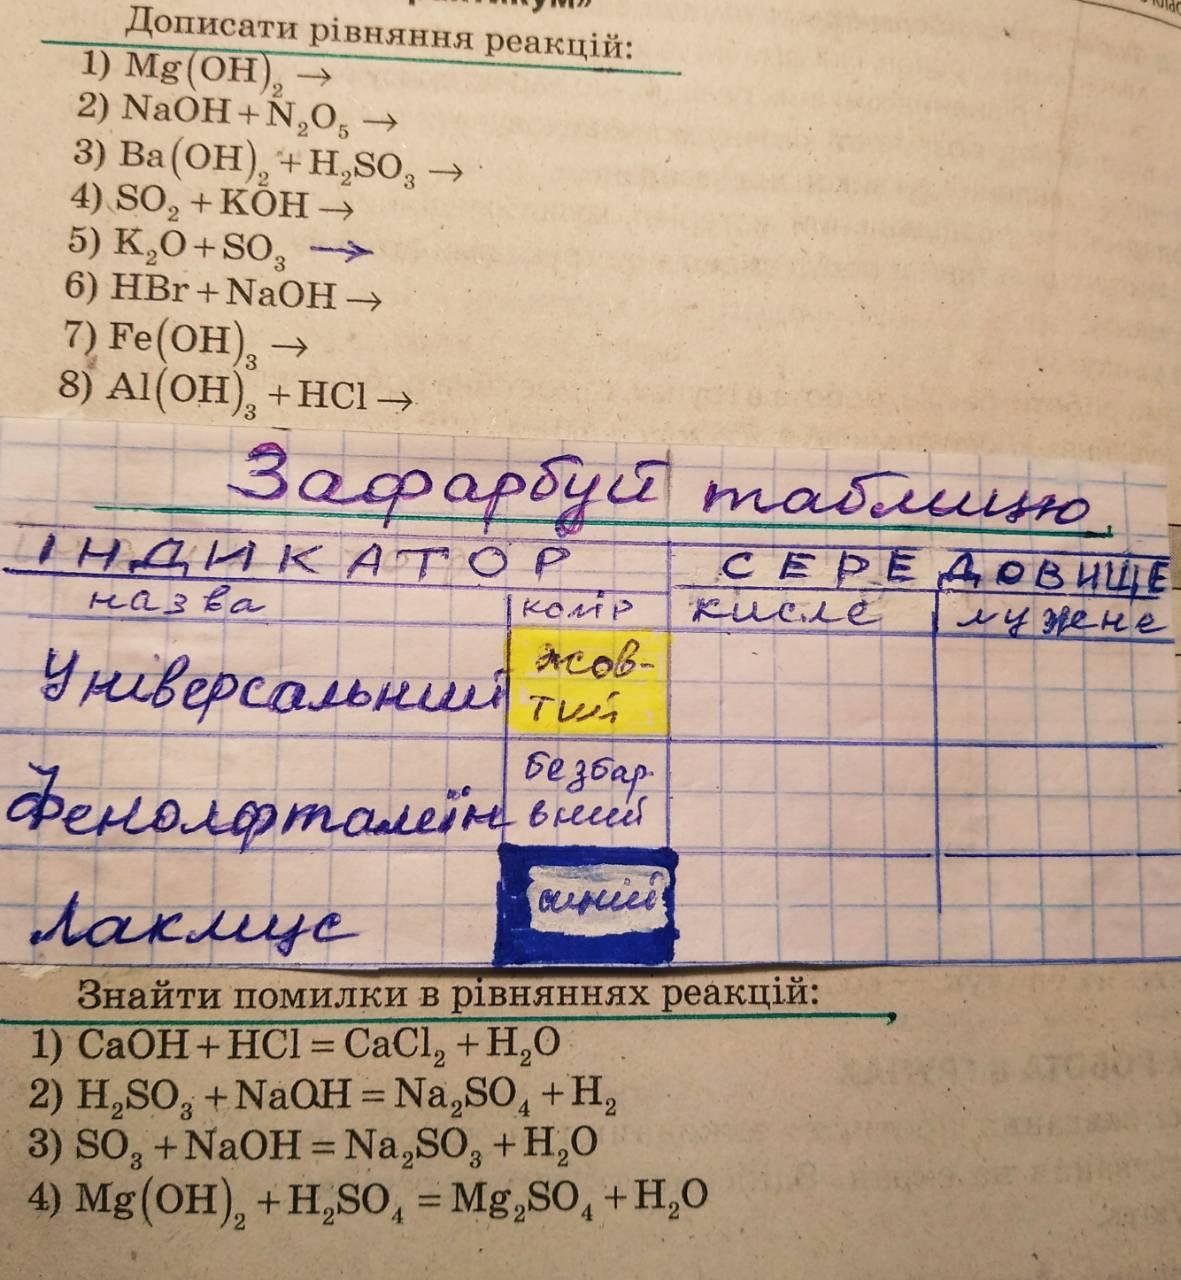 Дописати рівняння реакцій:
1) Mg(OH)₂ →
2) NaOH + N₂O₅ →
3) Ba(OH)₂ + H₂SO₃ →
4) SO₂ + KOH →
5) K₂O + SO₃ →
6) HBr + NaOH →
7) Fe(OH)₃ →
8) Al(OH)₃ + HCl →
Зафарбуй таблицю
ІНДИКАТОР СЕРЕДОВИЩЕ
назва колір кисле лужне
Універсальний жов-
тий
Фенолфталеїн безбар-
вний
Лакмус синій
Знайти помилки в рівняннях реакцій:
1) CaOH + HCl = CaCl₂ + H₂O
2) H₂SO₃ + NaOH = Na₂SO₄ + H₂
3) SO₃ + NaOH = Na₂SO₃ + H₂O
4) Mg(OH)₂ + H₂SO₄ = Mg₂SO₄ + H₂O